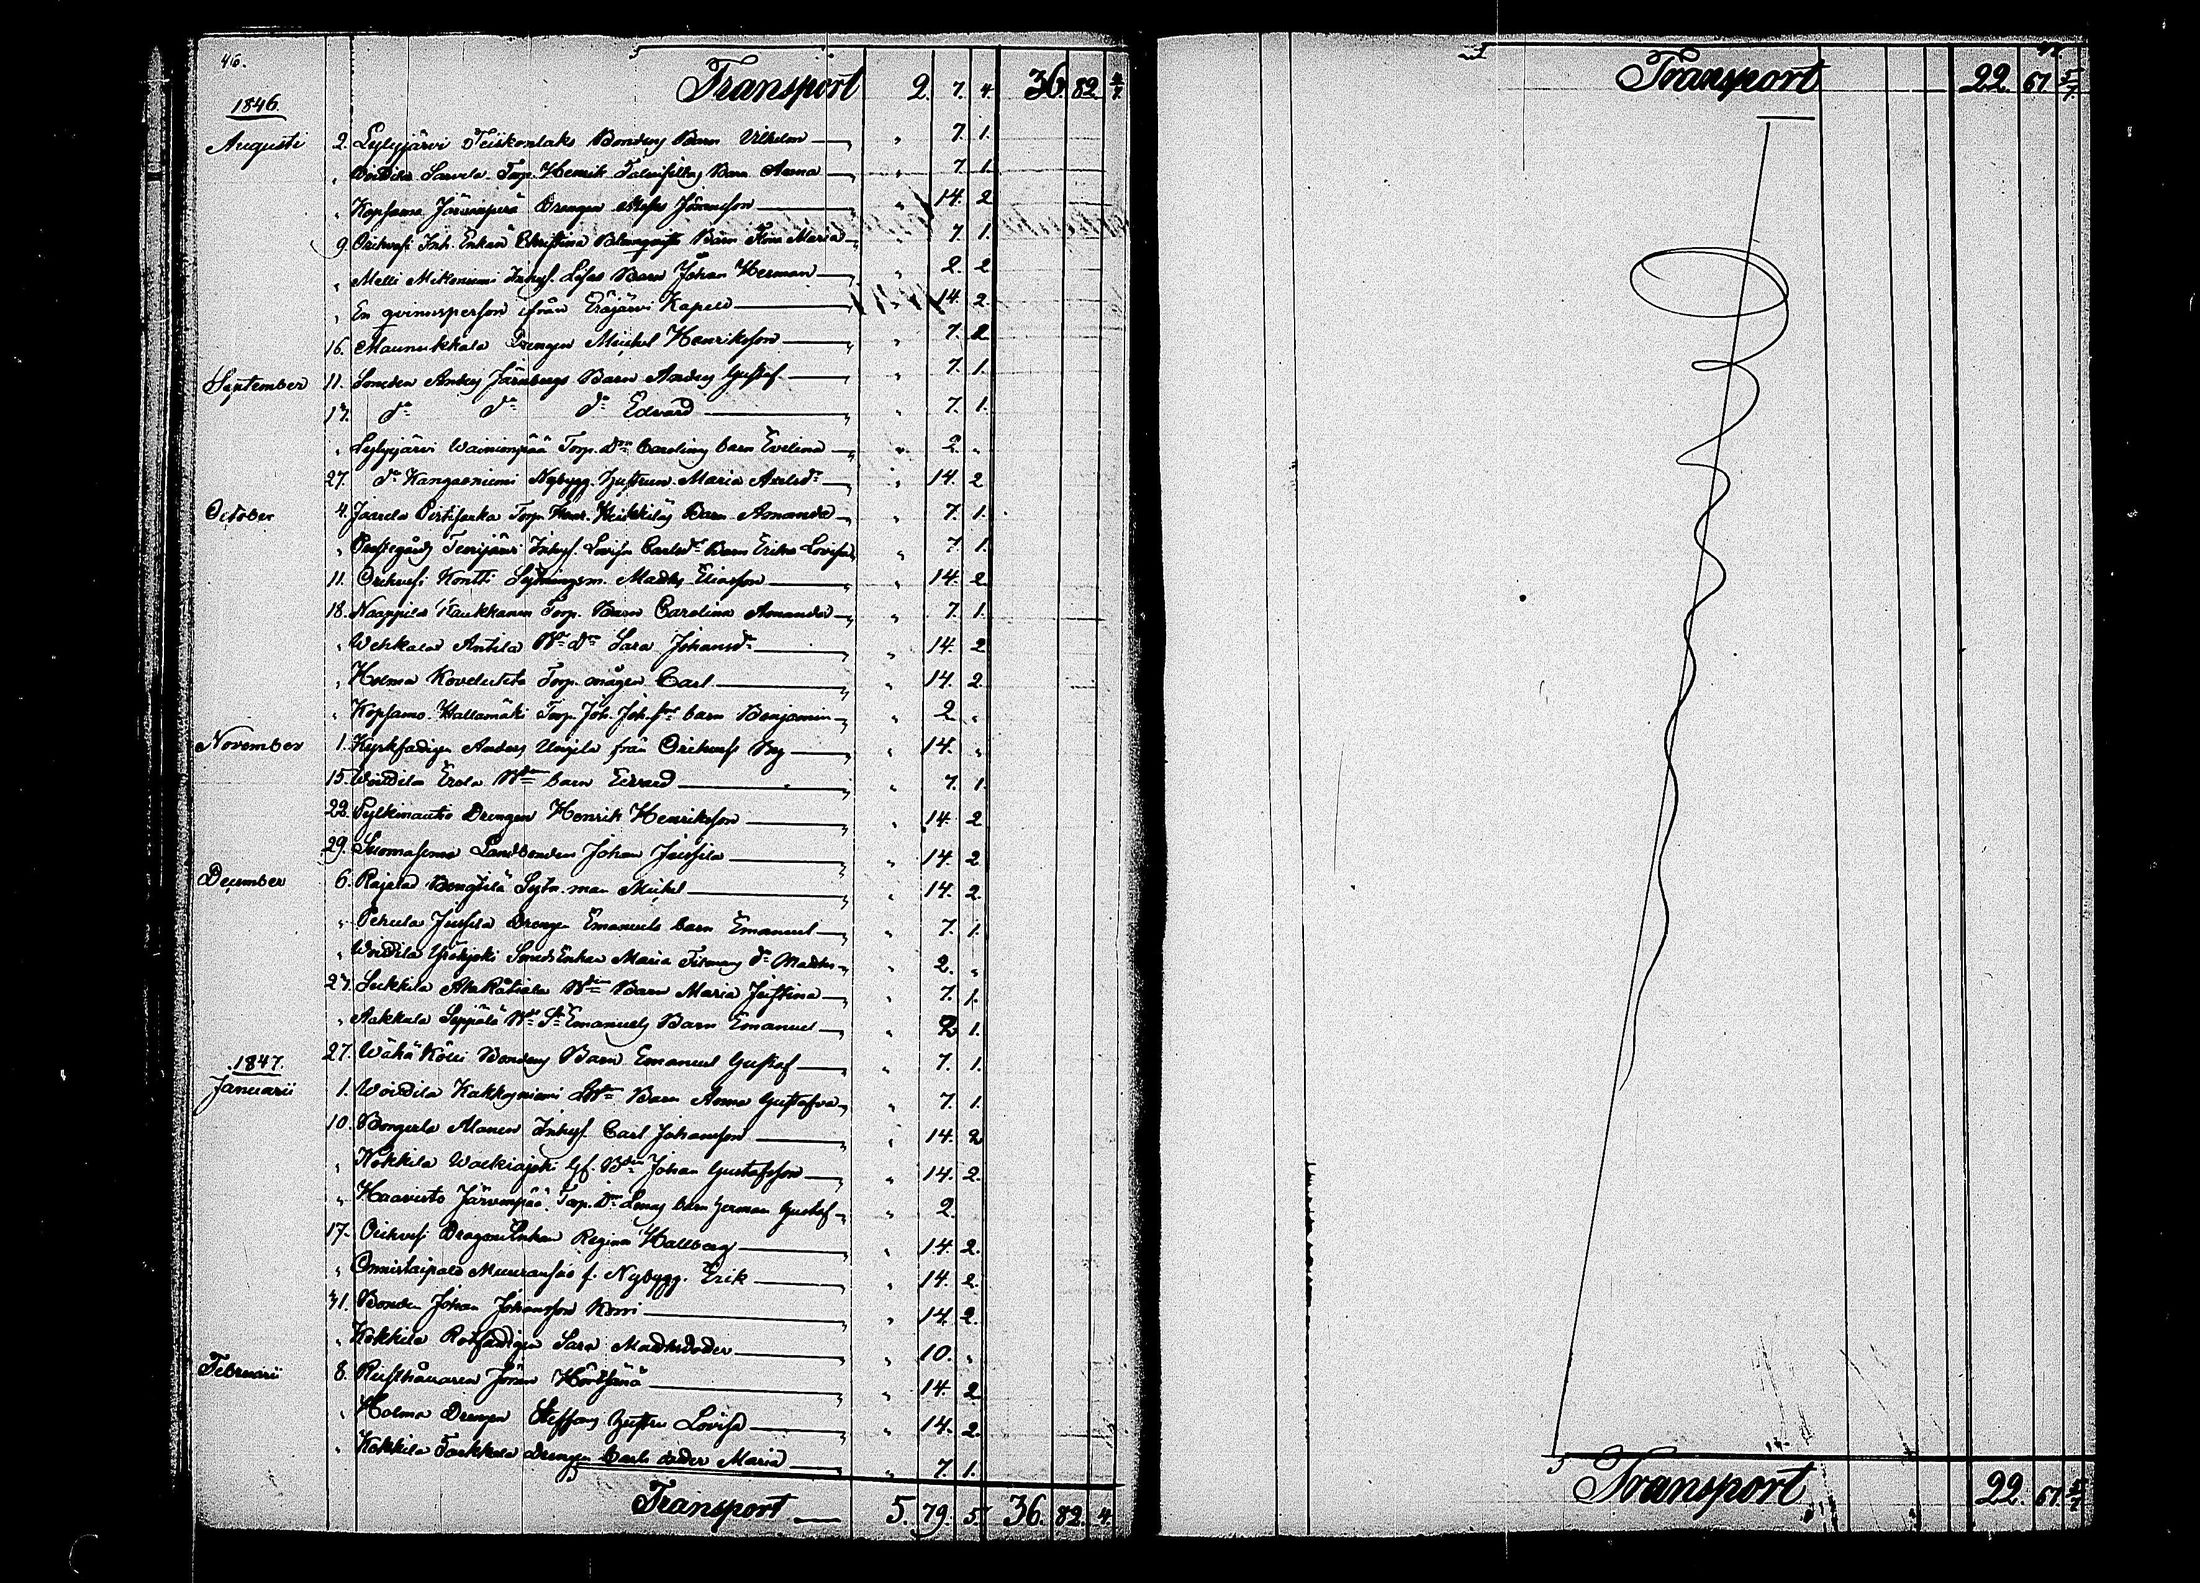 46.
Transport 2. 7. 4. 36. 82 4/7
1846.
Augusti 2. Lylyjärvi Teiskonlaks Bondens Barn Vilhelm — " 7. 1.
" Voitila Sarvela Torp. Henrik Barn Anna — " 7. 1.
" Kopsamo Järvenperä Drengen Jöransson — " 14. 2
9. Orihvesi Inh. Enkan Christina Blomqvists Barn Maria — " 7. 1.
" Melli Mikoniemi Inhys. Lisas Barn Johan Herman — " 2. 2
" En qvinnsperson ifrån Eräjärvi Kapell — " 14. 2.
16. Maunukkala Drengen Michel Henriksson — " 7. 2
September 11. Smeden Anders Järnbergs Barn Anders Gustaf — " 7. 1.
13. do do do Edvard — " 7. 1.
" Lylyjärvi Wainionpää Torp. Dn Carolinas barn Evelina — " 2. "
27. do Kangasniemi Nybygg. Hustrun Maria Axelsdr — " 14. 2
October 4. Jaarela Torp. Henr. Heikkiläs Barn Amanda — " 7. 1.
" Prestegårds Tenijärvi Inhys. Lovisa Carlsdr Barn Erika Lovisa " 7. 1.
11. Orihvesi Kontti Sytningsm. Matts Eliasson — " 14. 2.
18. Naappila Kaukkanen Torp. Barn Carolina Amanda — " 7. 1.
" Wehkala Antila Bn Dr Sara Johansdr — " 14. 2
" Holma Torp. mågen Carl — " 14. 2.
" Kopsamo Hallamäki Torp. Joh. Joh.sns barn Benjamin — " 2 "
November 1. Kyrkfadigen Anders Unijla från Orihvesi By — " 14. "
15. Voitila Erola Bdn barn Edvard — " 7. 1.
22. Pylkinautio Drengen Henrik Henriksson — " 14. 2
29. Suomasema Landbonden Johan Jussila — " 14. 2
December 6. Rajala Bengtilä Sytn. man Michel — " 14. 2.
" Pehula Jussila Drengen Emanuels barn Emanuel — " 7. 1.
" Voitila Yröhjoki Smeds Enkan Maria do Matts — " 2. "
27. Leikkila AlaRätiala Bdn Barn Maria Justina — " 7. 1.
" Aakkula Seppälä Bn Sn Emanuels Barn Emanuel — " 2 1.
27. Wähä Kölli Bondens Barn Emanuel Gustaf — " 7. 1.
1847.
Januarii 1. Voitila Kakkosniemi Barn Anna Gustafva — " 7. 1.
10. Bengtila Alanen Inhys. Carl Johansson — " 14. 2
" Kokkila Walkiajoki Gf. Bdn Johan Gustafsson — " 14. 2.
" Haavisto Järvenpää Torp. Dr Lenas barn Herman Gustaf — " 2.
17. Orihvesi Dragon Enkan Regina Hallberg — " 14. 2.
" Onnistaipale f. Nybygg. Erik — " 14. 2.
31. Bonden Johan Johansson Korri — " 14. 2.
" Kokkila Rotfadigen Sara Mattsdoder — " 10. "
Februarii 8. Rusthållaren Jöran Hörtsänä — " 14. 2
" Holma Drengen Steffans Hustru Lovisa — " 14. 2
" Kokkila Torkkela Drengen Carls doder Maria — " 7. 1.
Transport — 5. 79. 5. 36. 82. 4.
Transport 22. 61. 5/7
Transport 22. 61. 5/7